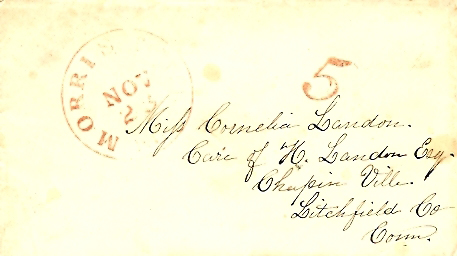 MORRIS
NOV
23
5
Miss Cornelia Landon.
Care of H. Landon Esq.
Chapin Ville.
Litchfield Co
Conn.